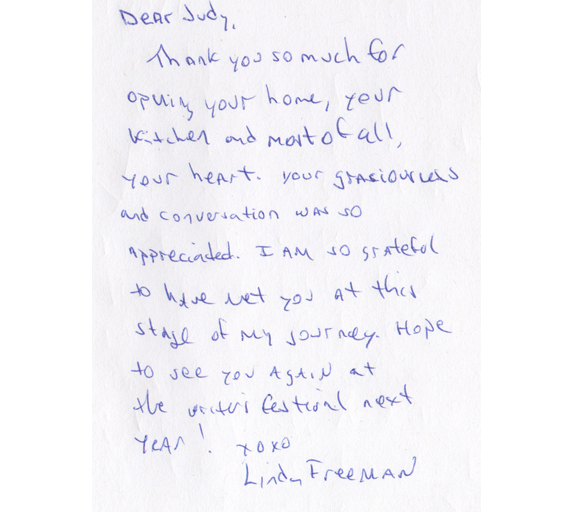 Dear Judy,
Thank you so much for
opening your home, your
kitchen and most of all,
your heart. Your grasiousness
and conversation was so
appreciated. I am so grateful
to have met you at this
stage of my journey. Hope
to see you again at
the writer's festival next
year! xoxo
Linda Freeman